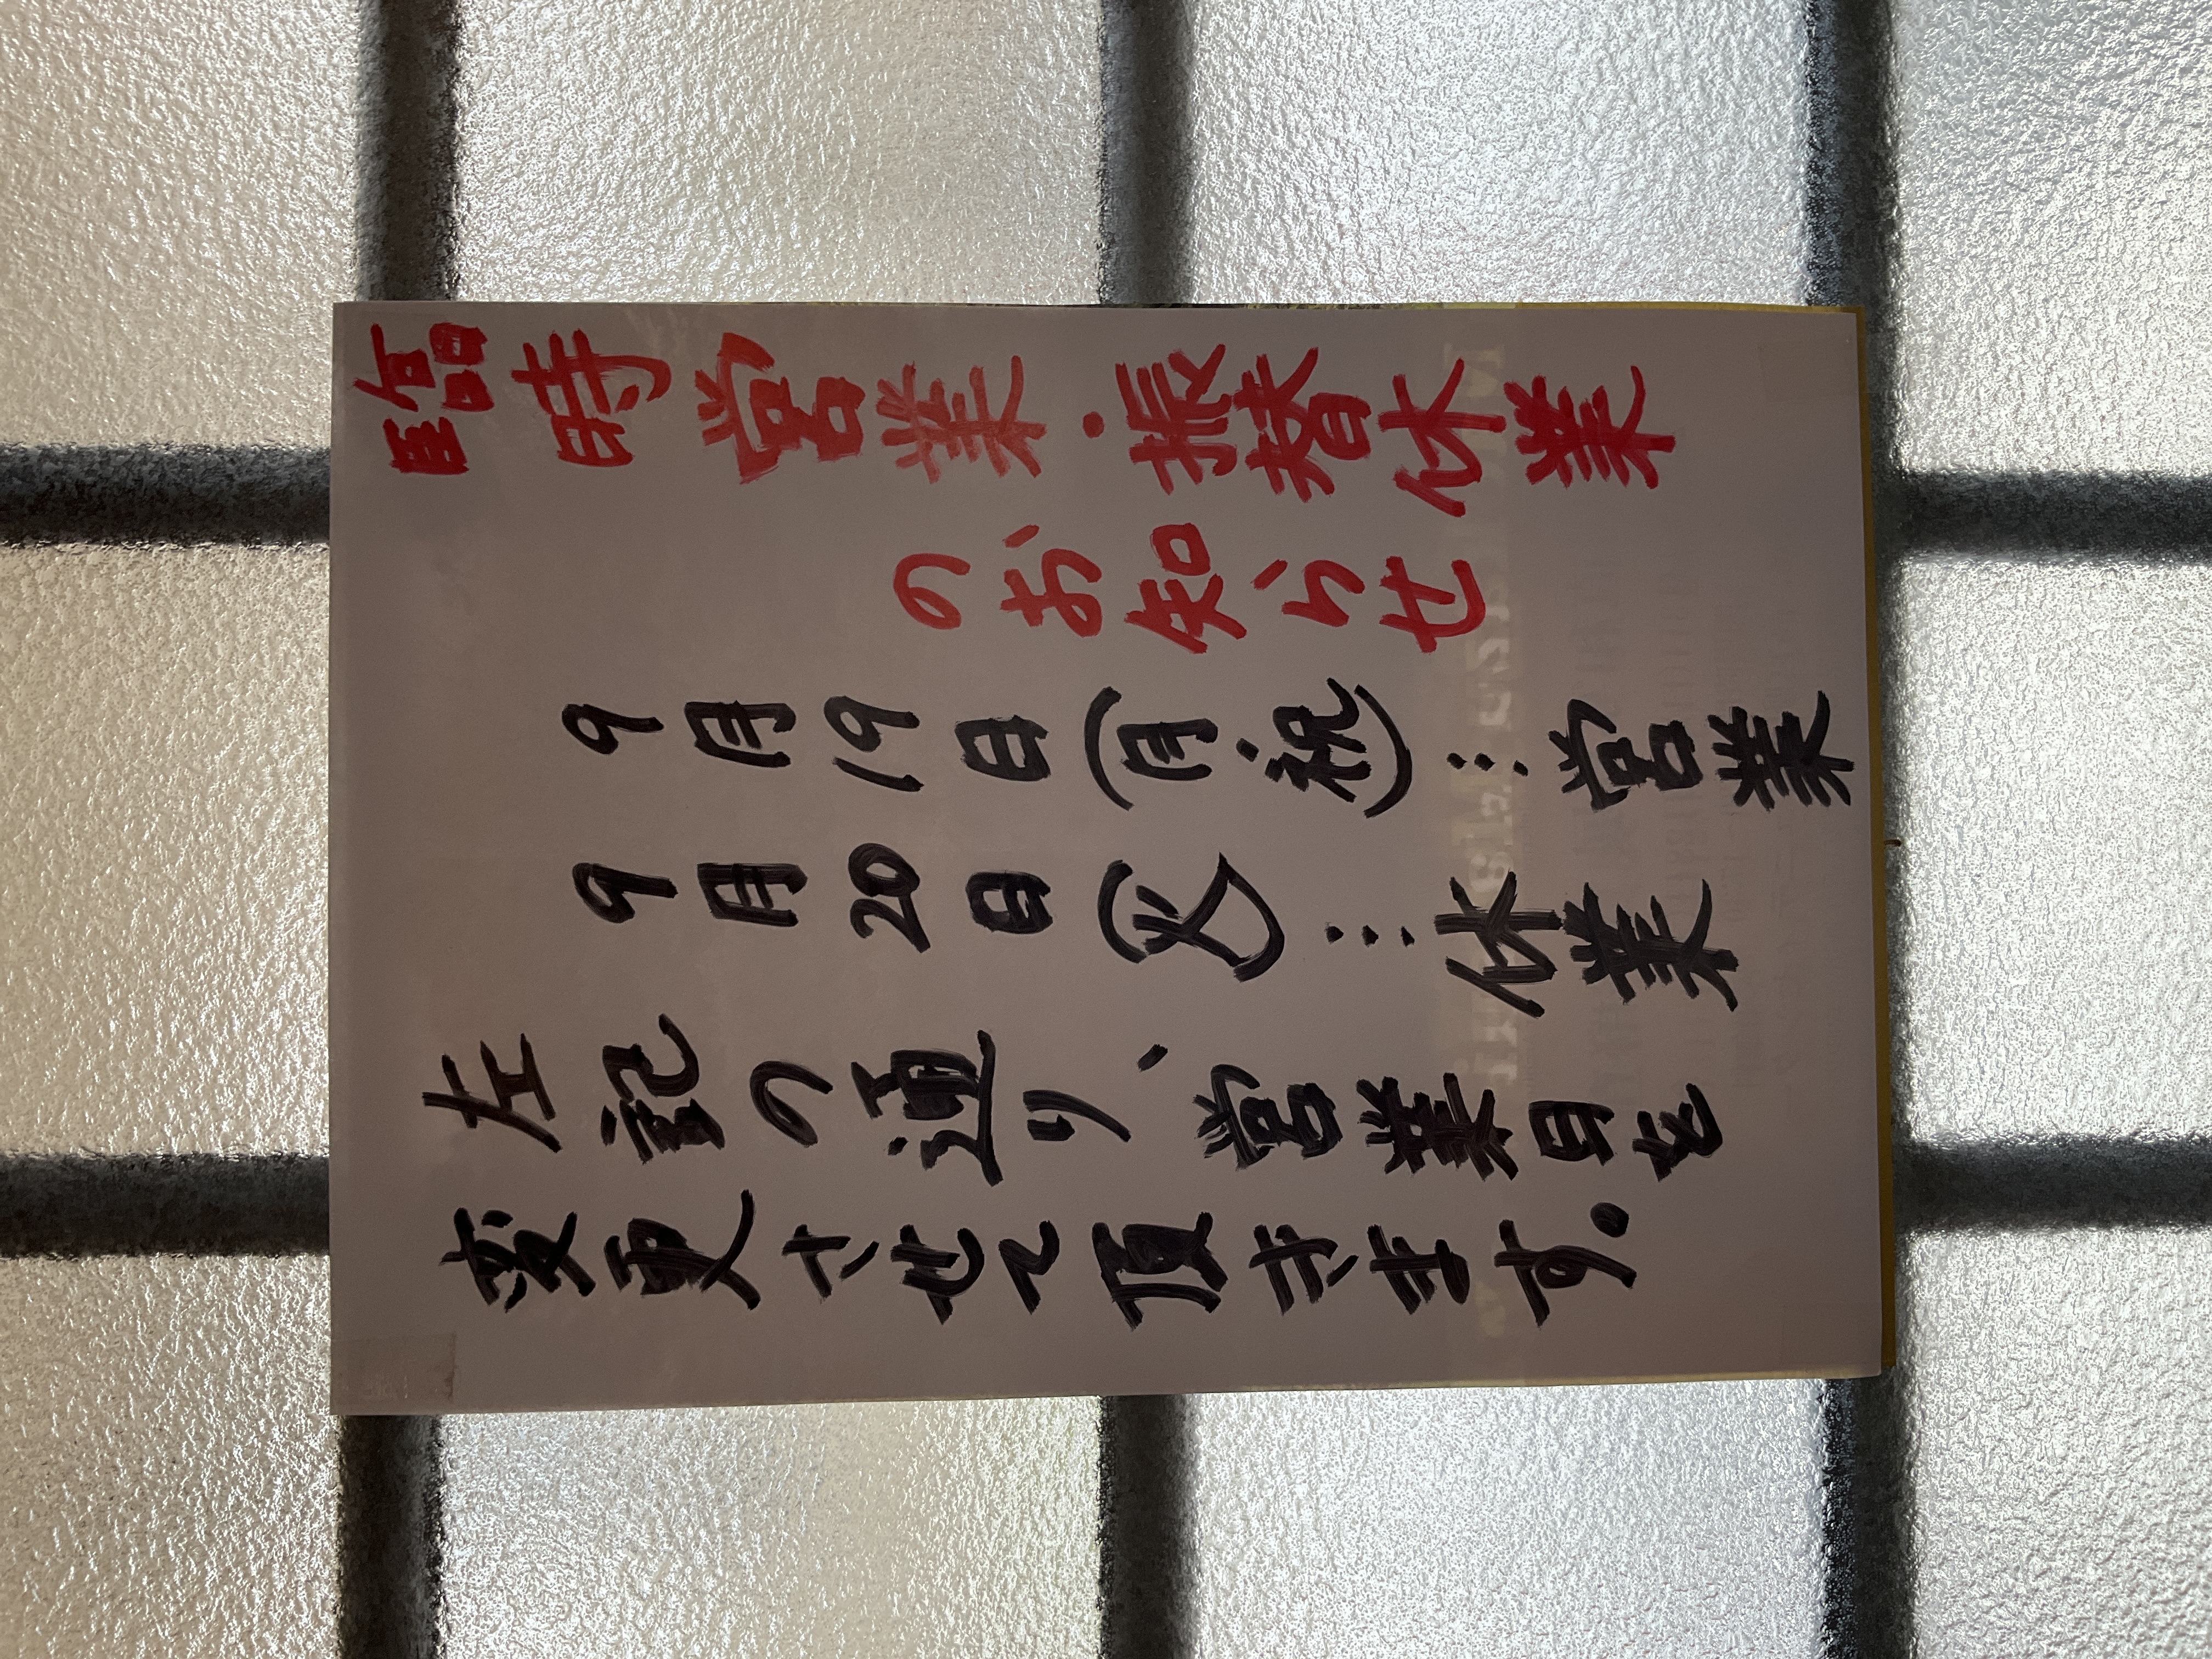 臨時営業・振替休業
のお知らせ
9月19日(月・祝)…営業
9月20日(火)…休業
左記の通り、営業日を
変更させて頂きます。